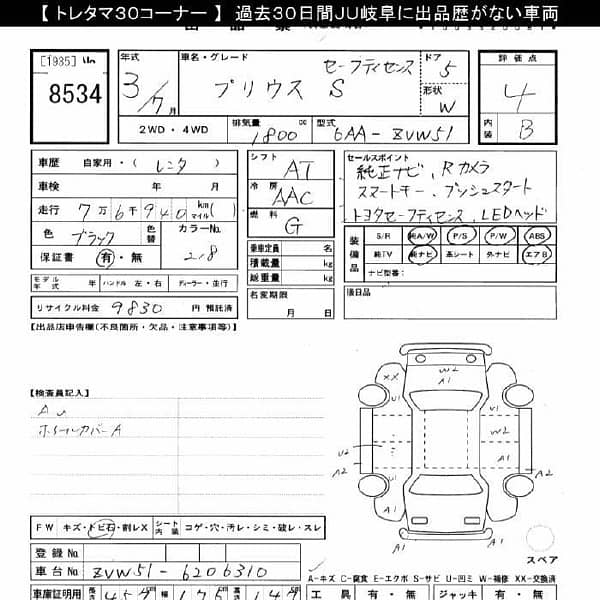 【 トレタマ３０コーナー 】 過去３０日間ＪＵ岐阜に出品歴がない車両
[1935]
8534
年式
3/7月
車名・グレード
プリウス S
セーフティセンス
ドア
5
形状
W
評価点
4
内装
B
2WD ・ 4WD
排気量
1800
cc
型式
6AA-ZVW51
車歴 自家用・(レンタ)
車検 年 月
走行 7万6千940 km マイル ( )
色 ブラック
色替
カラーNo.
218
保証書 有・無
モデル年式 年 ハンドル 左・右 ディーラー・並行
リサイクル料金 9830 円 預託済
シフト
AT
冷房
AAC
燃料
G
乗車定員 名
積載量 kg
総重量 kg
名変期限
月 日
セールスポイント
純正ナビ、Rカメラ
スマートキー、プッシュスタート
トヨタセーフティセンス、LEDヘッド
装備品
S/R 純A/W P/S P/W ABS
純TV 純ナビ 革シート 外ナビ エアB
ナビ型番:
後日品
【出品店申告欄(不良箇所・欠品・注意事項等)】
【検査員記入】
ホイールカバーA
FW キズ・トビ石・割レX
シート内装
コゲ・穴・汚レ・シミ・破レ・スレ
登録 No.
車台 No. ZVW51-6206310
車庫証明用
W2
A1
XX
U1
U1
A1
U2
W2
A2
A1
A2
A1
A1
A1
A1
スペア
A-キズ C-腐食 E-エクボ S-サビ U-凹ミ W-補修 XX-交換済
工具 有・無 ジャッキ 有・無